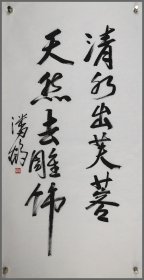 清水出芙蓉
天然去雕饰
潘鹤